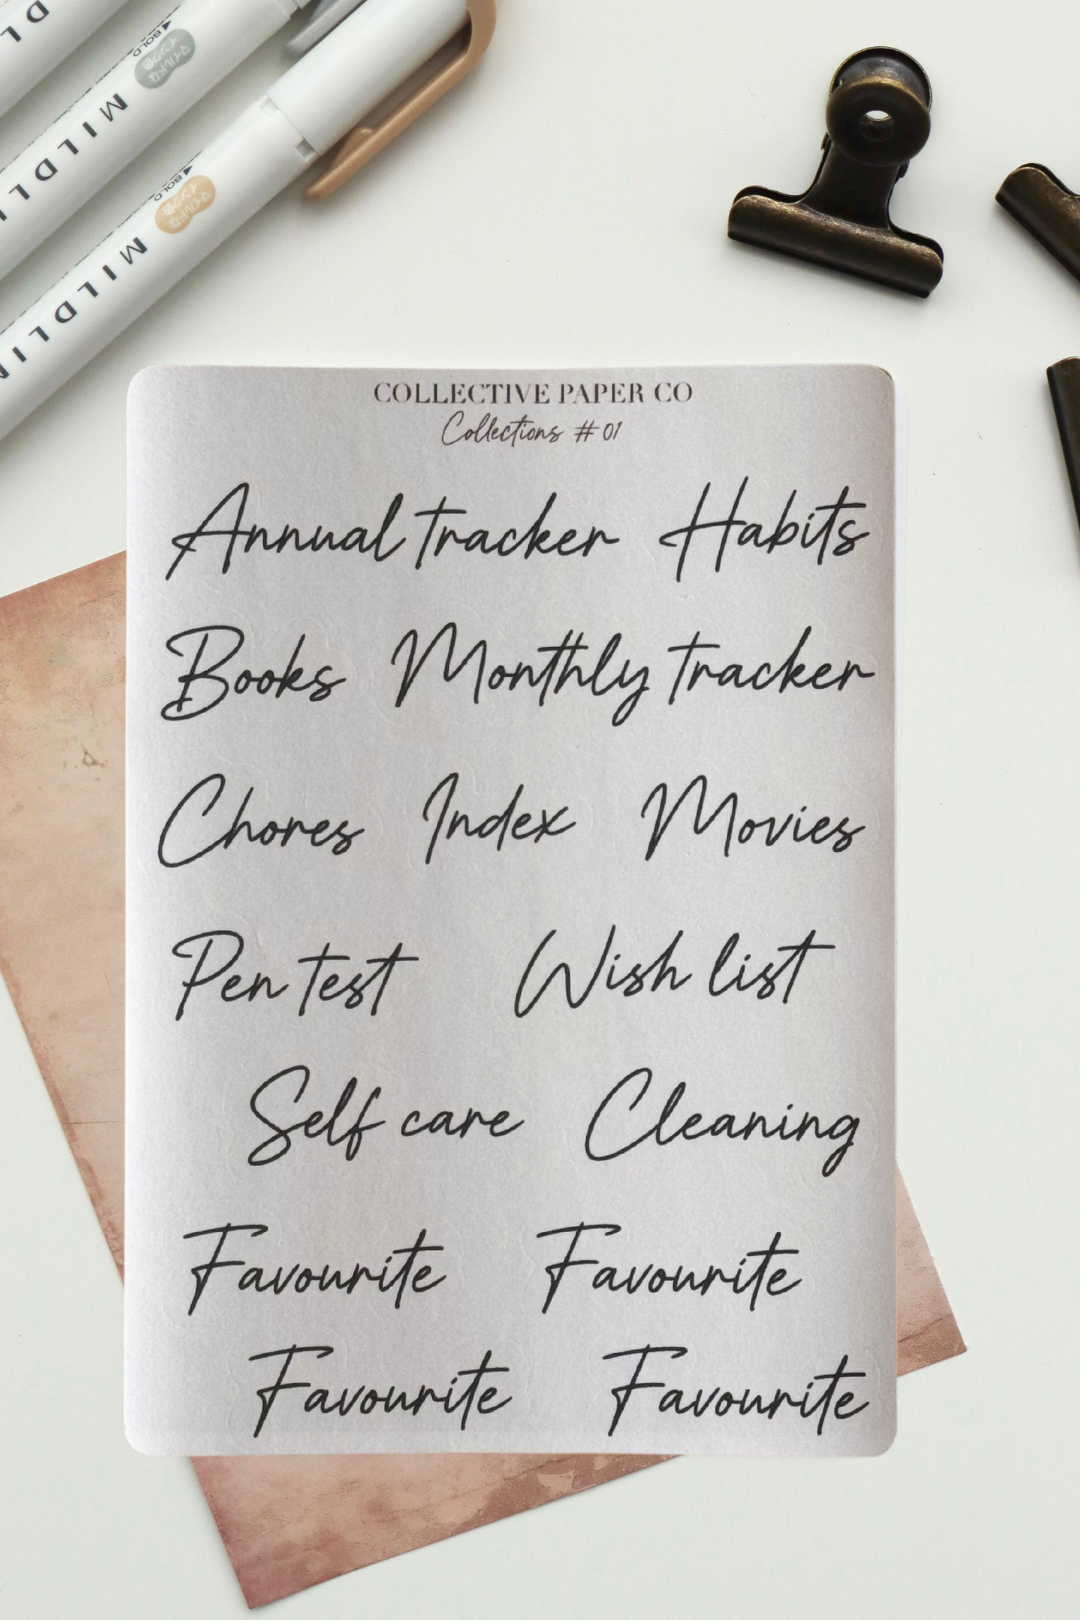 BOLD
マイルドな
インク色
MILDLI
BOLD
マイルドな
インク色
MILDLIN
COLLECTIVE PAPER CO
Collections #01
Annual tracker Habits
Books Monthly tracker
Chores Index Movies
Pen test Wish list
Self care Cleaning
Favourite Favourite
Favourite Favourite